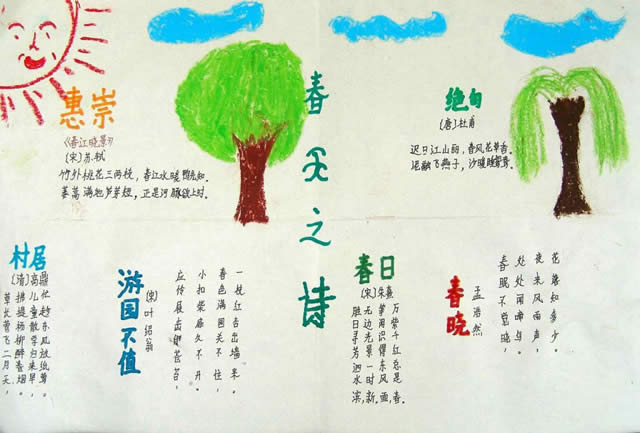 春天之诗
惠崇
《春江晓景》
(宋)苏轼
竹外桃花三两枝，春江水暖鸭先知。
蒌蒿满地芦芽短，正是河豚欲上时。
绝句
(唐)杜甫
迟日江山丽，春风花草香。
泥融飞燕子，沙暖睡鸳鸯。
村居
(清)高鼎
草长莺飞二月天，
拂堤杨柳醉春烟。
儿童散学归来早，
忙趁东风放纸鸢。
游园不值
(宋)叶绍翁
应怜屐齿印苍苔，
小扣柴扉久不开。
春色满园关不住，
一枝红杏出墙来。
春日
(宋)朱熹
胜日寻芳泗水滨，
无边光景一时新。
等闲识得东风面，
万紫千红总是春。
春晓
孟浩然
春眠不觉晓，
处处闻啼鸟。
夜来风雨声，
花落知多少。